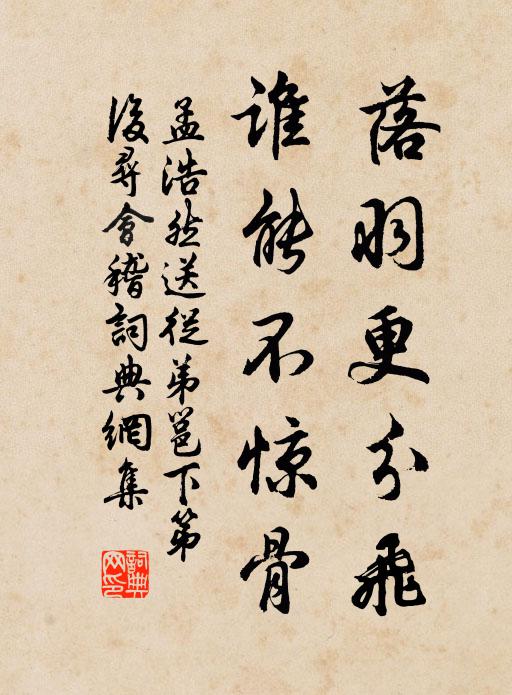 落羽更分飛
谁能不惊骨
孟浩然送從弟邕下第
後尋會稽詞典網集
詞典网印